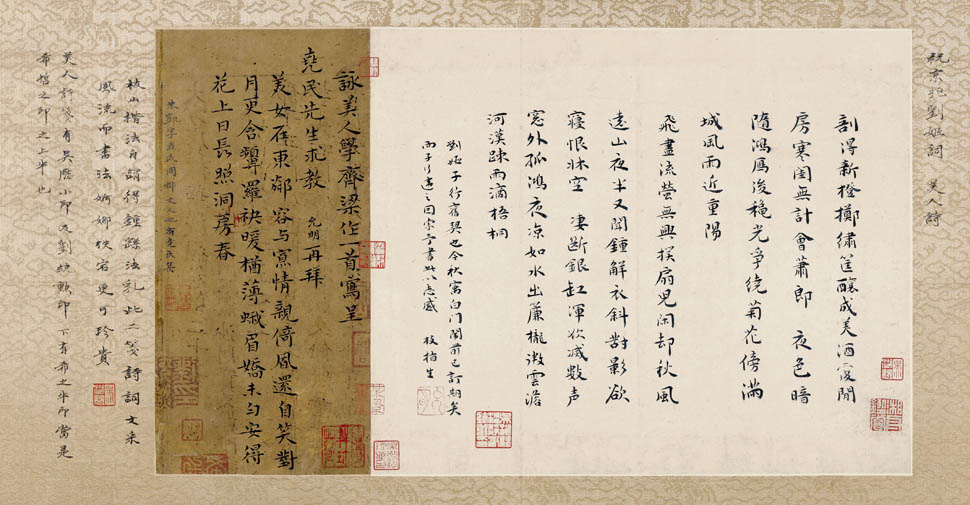 祝京兆劉姬詞 美人詩
剖得新橙擲繡筐釀成美酒宴閒
房寒閨無計會蕭郎 夜色暗
隨鴻鴈後穐光爭繞菊花傍滿
城風雨近重陽
飛盡流螢無與撲扇兒閑却秋風
遠山夜半又聞鍾解衣斜對影欲
寢恨牀空 凄斷銀缸渾欲滅數声
窓外孤鴻夜凉如水出簾櫳微雲澹
河漢疎雨滴梧桐
劉姬子行舊契也今秋寓白门閨前已訂期矣
而予因書此以志感 枝指生
詠美人學齊梁作一首寫呈
堯民先生求教 允明再拜
美女在東鄰容与冥情親倚風還自笑對
月更含顰羅袂暖猶薄蛾眉嬌未匀安得
花上日長照洞房春
朱凱字堯民同郡文人也有堯民集
枝山楷法自謂得鍾繇法乳此二箋詩詞文采
風流而書法婀娜更可珍貴
美人詩箋有吳歷小印及劉印下有希之半印當是
希哲之印之上半也